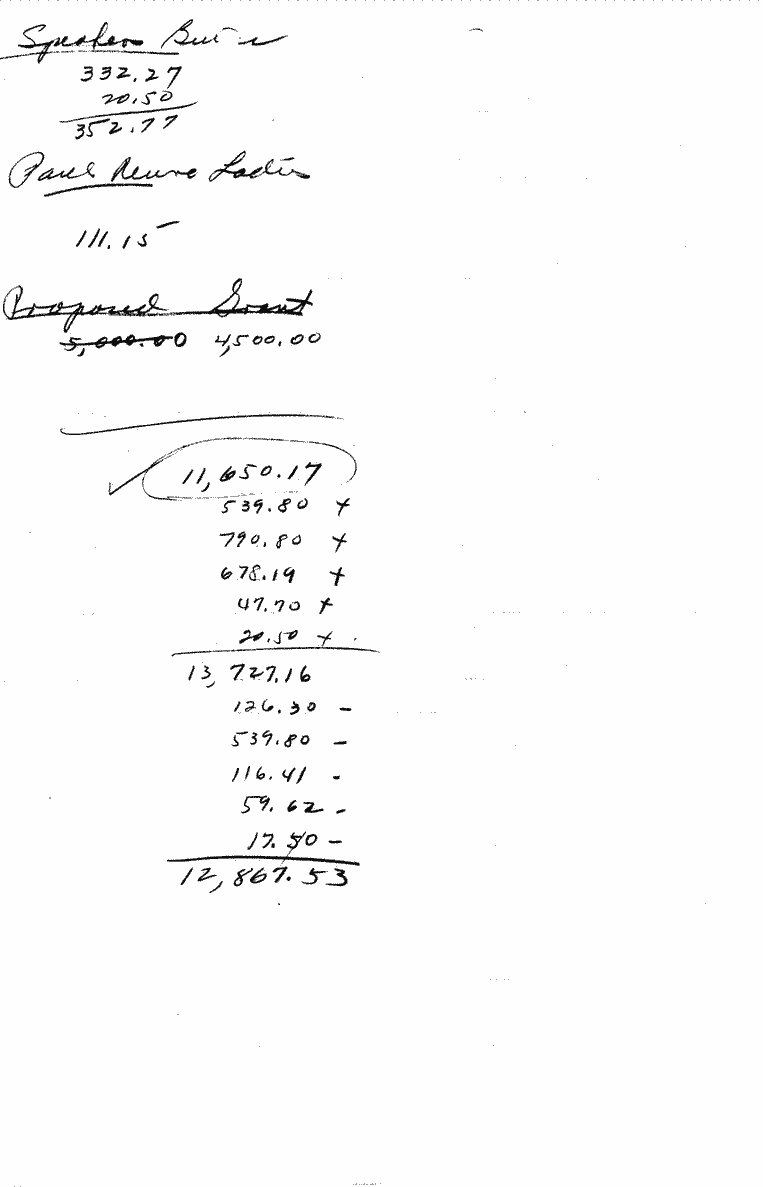 Speakers
332.27
20.50
352.77
Paul Revere Ladies
111.15
Proposed Grant
5,000.00 4,500.00
11,650.17
539.80 +
790.80 +
678.19 +
47.70 +
20.50 +
13,727.16
126.30 -
539.80 -
116.41 -
59.62 -
17.50 -
12,867.53